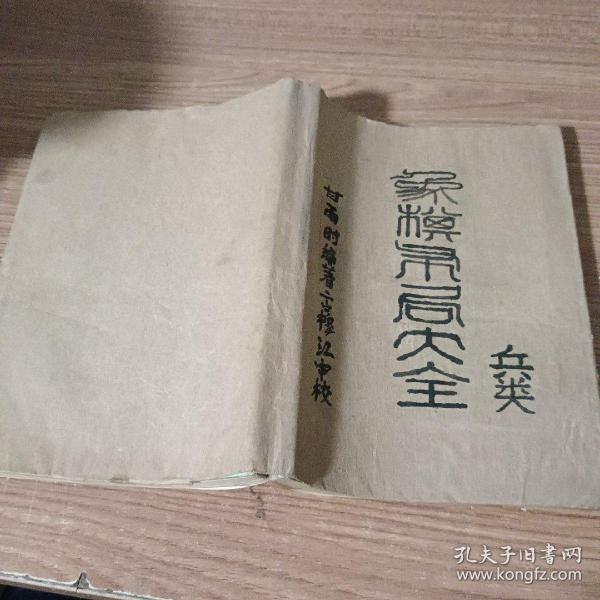 象棋布局大全
兵类
甘雨时编著 江中校
孔夫子旧书网
www.kongfz.com